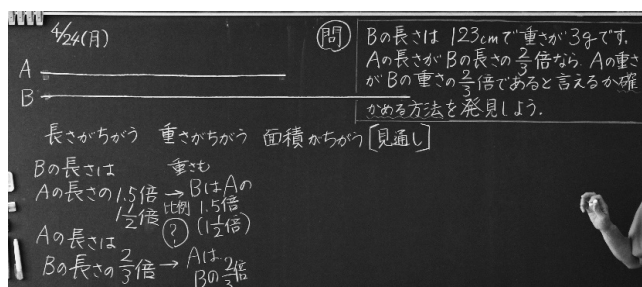 4/24(月)
問
Bの長さは 123cmで重さが3gです。
Aの長さがBの長さの2/3倍なら、Aの重さ
がBの重さの2/3倍であると言えるか確
かめる方法を発見しよう.
A
B
長さがちがう 重さがちがう 面積がちがう [見通し]
Bの長さは
Aの長さの1.5倍
1 1/2倍
Aの長さは
Bの長さの2/3倍
→
比例
?
→
重さも
BはAの
1.5倍
(1 1/2倍)
Aは
Bの2/3倍